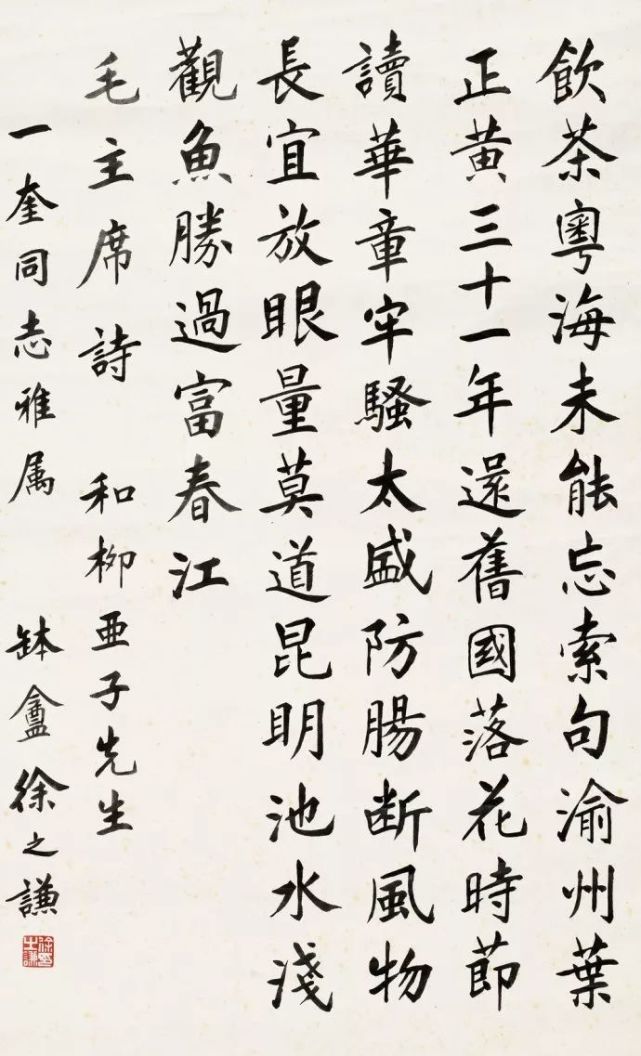 飲茶粵海未能忘索句渝州葉
正黄三十一年還舊國落花時節
讀華章牢騷太盛防腸断風物
長宜放眼量莫道昆明池水淺
觀魚勝過富春江
毛主席詩 和柳亞子先生
一奎同志雅属 缽盦徐之謙
徐之謙印